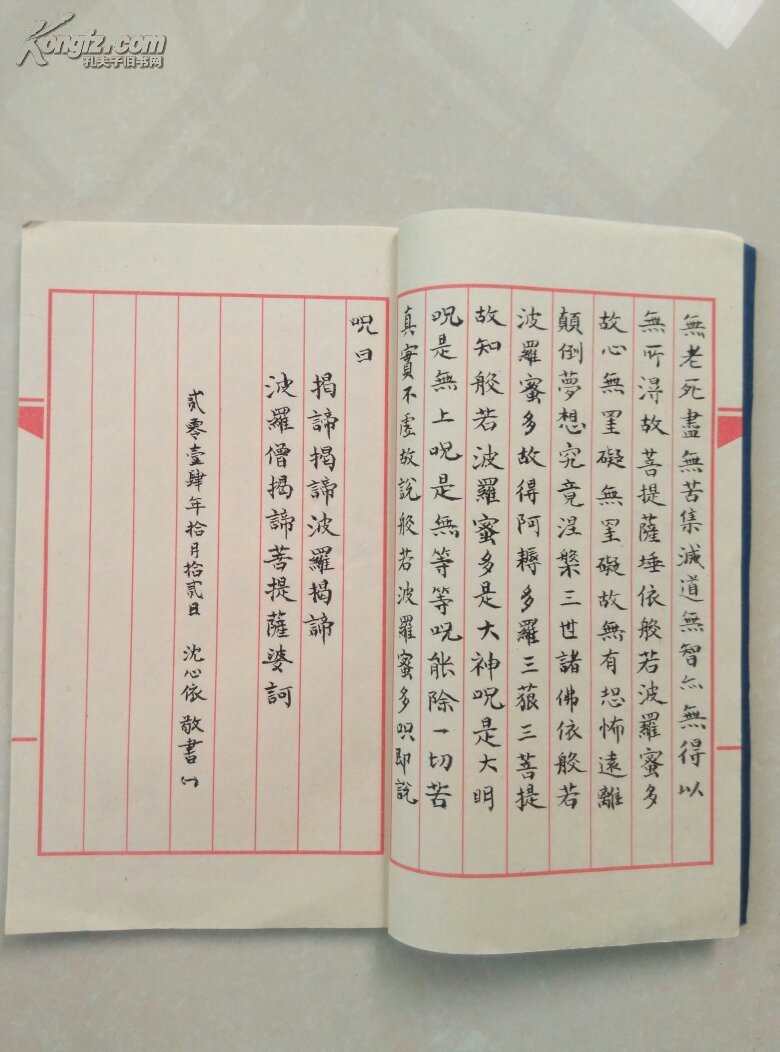 Kongfz.com
孔夫子旧书网
無老死盡無苦集滅道無智亦無得以
無所得故菩提薩埵依般若波羅蜜多
故心無罣礙無罣礙故無有恐怖遠離
顛倒夢想究竟涅槃三世諸佛依般若
波羅蜜多故得阿耨多羅三藐三菩提
故知般若波羅蜜多是大神呪是大明
呪是無上呪是無等等呪能除一切苦
真實不虛故說般若波羅蜜多呪即說
呪曰
揭諦揭諦波羅揭諦
波羅僧揭諦菩提薩婆訶
貳零壹肆年拾月拾貳日 沈心依 敬書 (一)